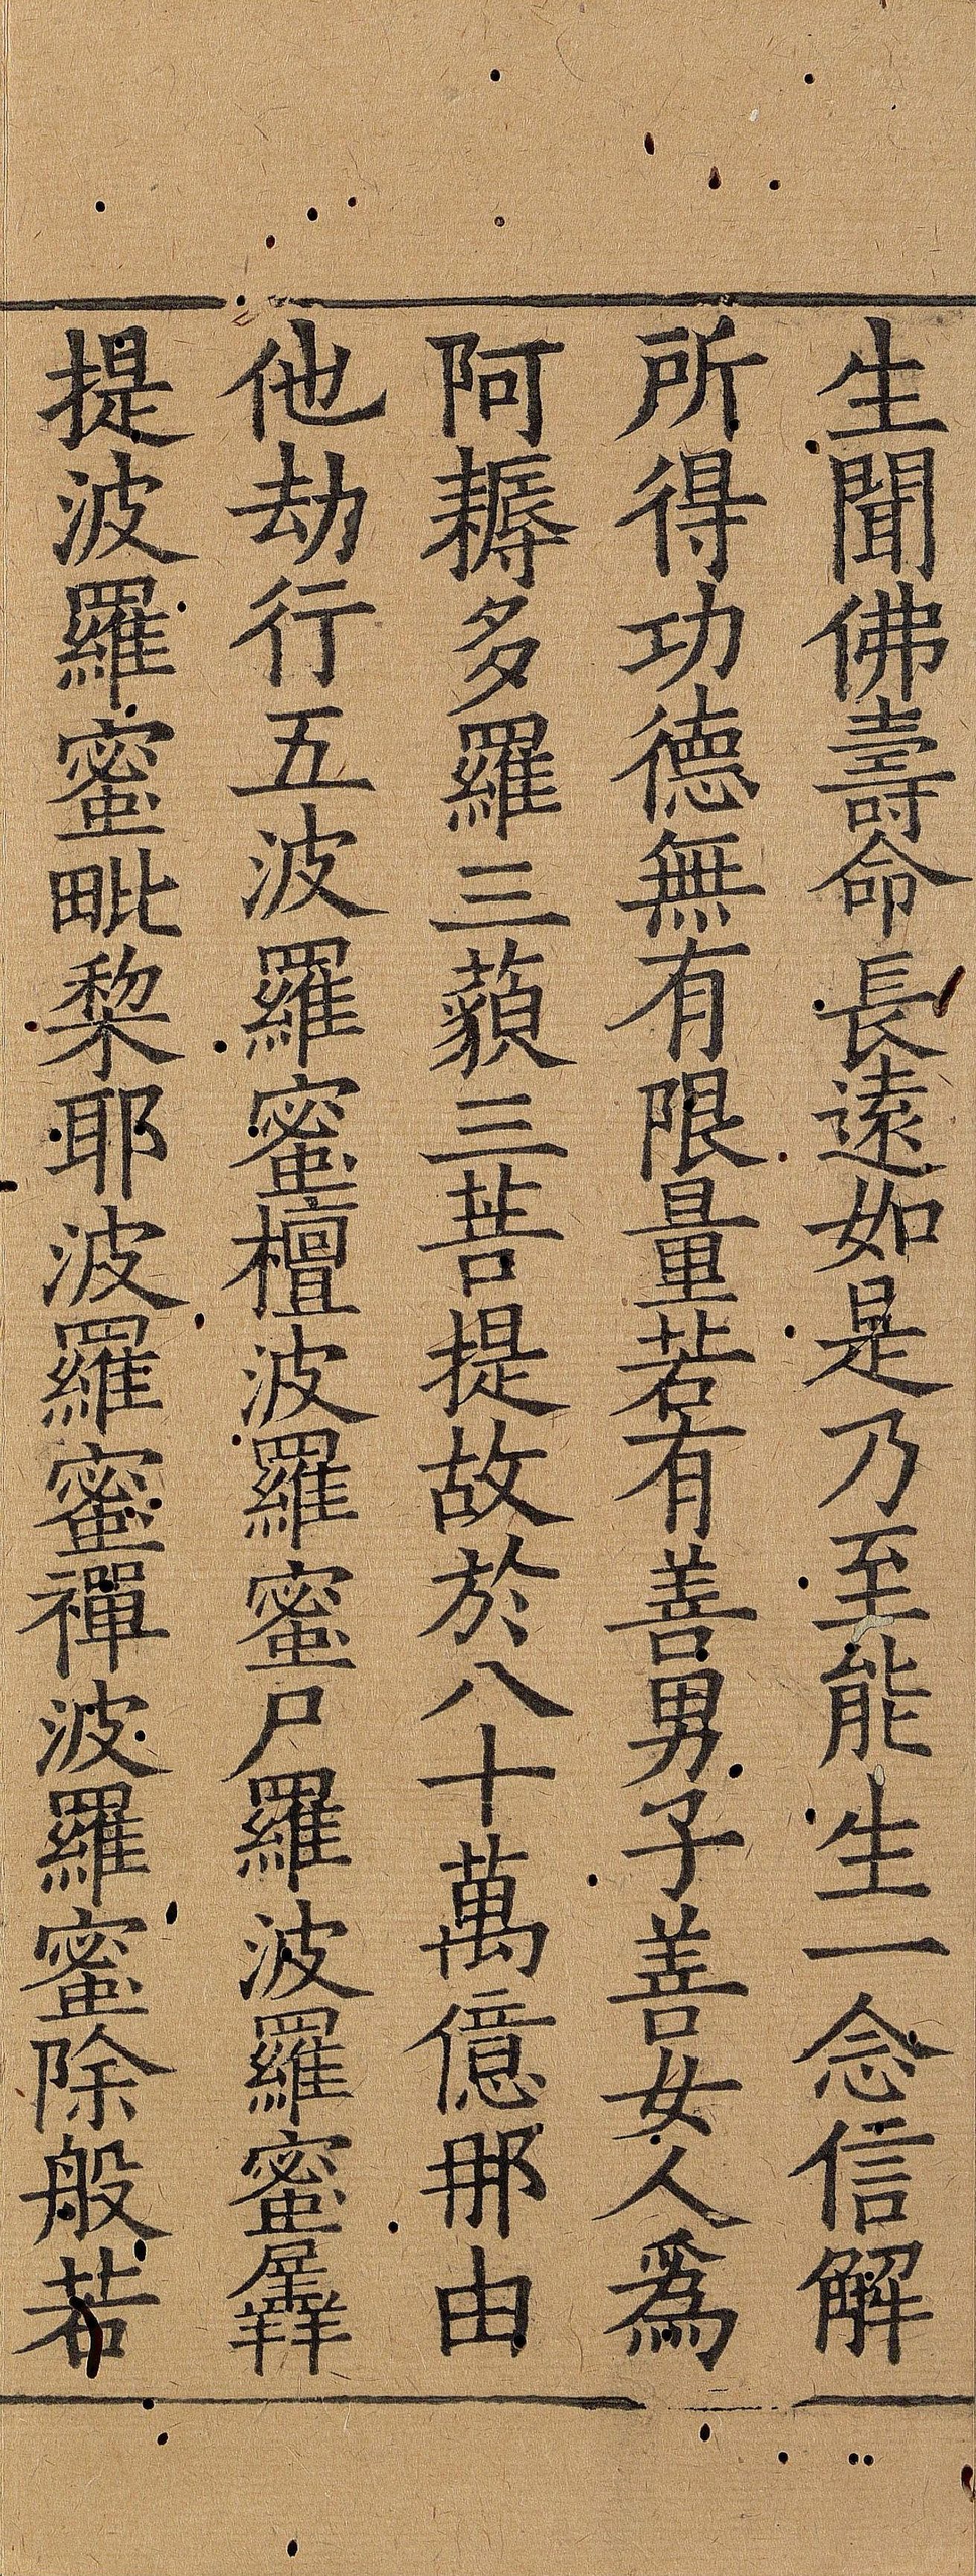 生聞佛壽命長遠如是乃至能生一念信解
所得功德無有限量若有善男子善女人爲
阿耨多羅三藐三菩提故於八十萬億那由
他劫行五波羅蜜檀波羅蜜尸羅波羅蜜羼
提波羅蜜毗梨耶波羅蜜禪波羅蜜除般若